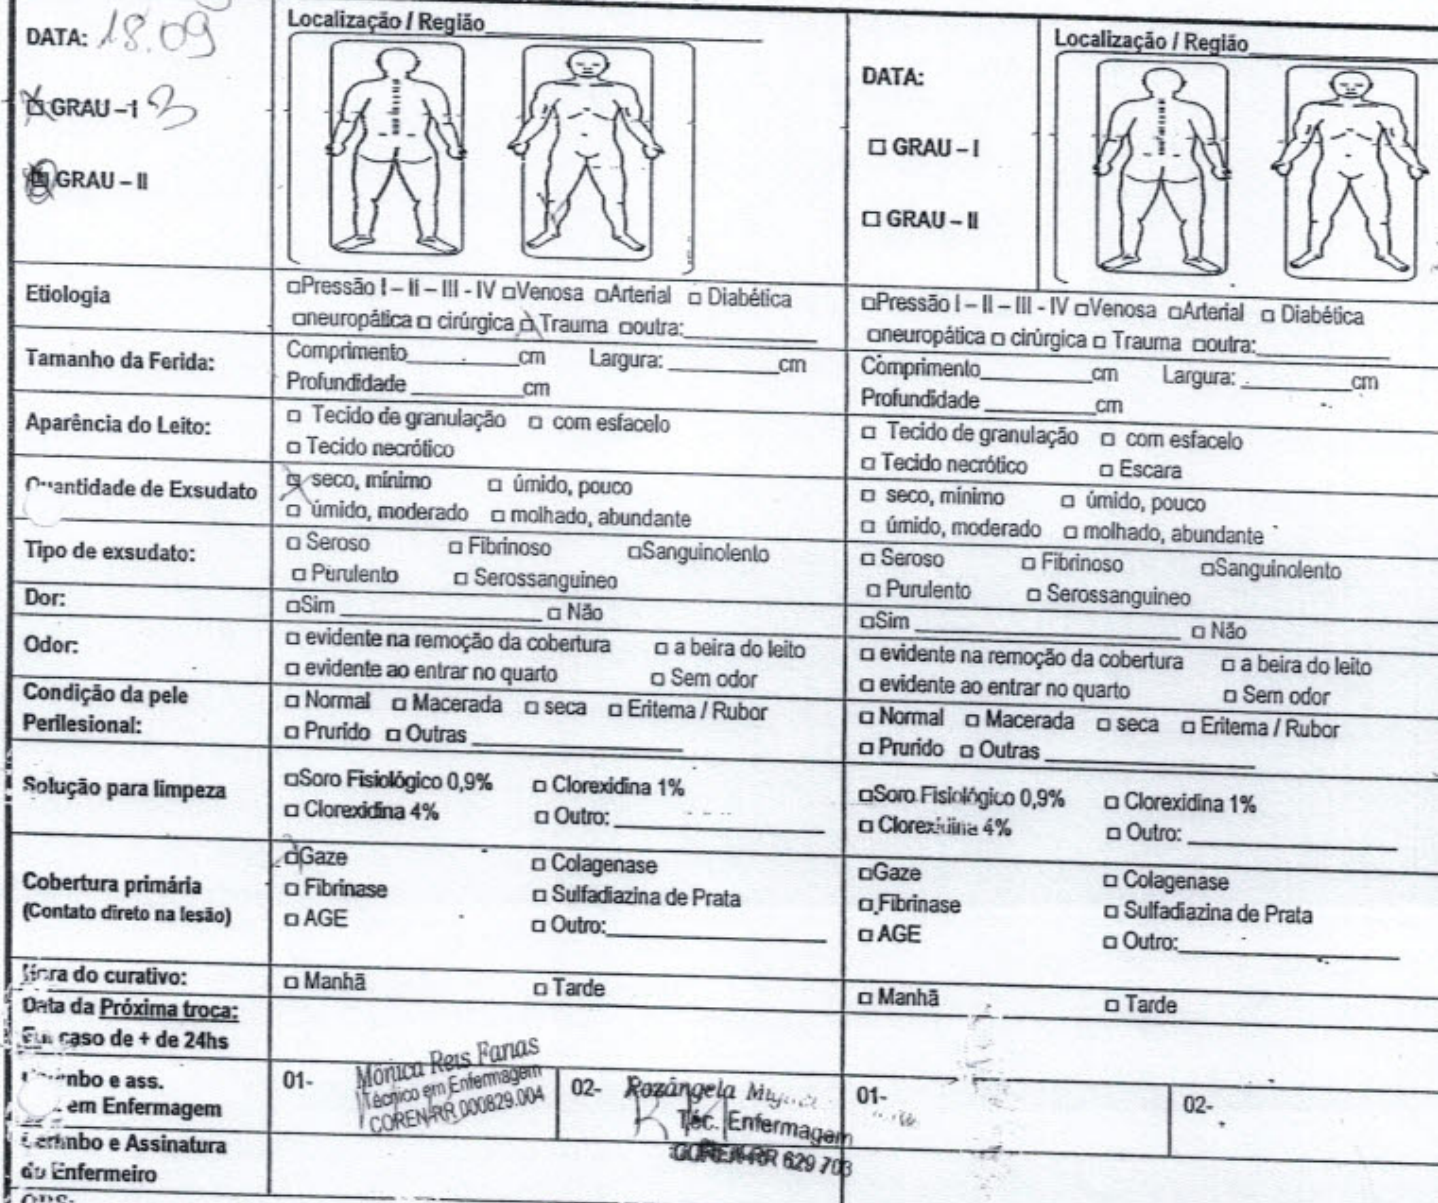 DATA: 18.09
☒ GRAU – I 3
GRAU – II
Localização / Região
DATA:
☐ GRAU – I
☐ GRAU – II
Localização / Região
Etiologia
☐Pressão I – II – III - IV ☐Venosa ☐Arterial ☐ Diabética
☐neuropática ☐ cirúrgica ☒ Trauma ☐outra:
☐Pressão I – II – III - IV ☐Venosa ☐Arterial ☐ Diabética
☐neuropática ☐ cirúrgica ☐ Trauma ☐outra:
Tamanho da Ferida:
Comprimento__________cm Largura: __________cm
Profundidade __________cm
Comprimento__________cm Largura: __________cm
Profundidade __________cm
Aparência do Leito:
☐ Tecido de granulação ☐ com esfacelo
☐ Tecido necrótico
☐ Tecido de granulação ☐ com esfacelo
☐ Tecido necrótico ☐ Escara
Quantidade de Exsudato
☒ seco, mínimo ☐ úmido, pouco
☐ úmido, moderado ☐ molhado, abundante
☐ seco, mínimo ☐ úmido, pouco
☐ úmido, moderado ☐ molhado, abundante
Tipo de exsudato:
☐ Seroso ☐ Fibrinoso ☐Sanguinolento
☐ Purulento ☐ Serossanguineo
☐ Seroso ☐ Fibrinoso ☐Sanguinolento
☐ Purulento ☐ Serossanguineo
Dor:
☐Sim __________ ☐ Não
☐Sim __________ ☐ Não
Odor:
☐ evidente na remoção da cobertura ☐ a beira do leito
☐ evidente ao entrar no quarto ☐ Sem odor
☐ evidente na remoção da cobertura ☐ a beira do leito
☐ evidente ao entrar no quarto ☐ Sem odor
Condição da pele
Perilesional:
☐ Normal ☐ Macerada ☐ seca ☐ Eritema / Rubor
☐ Prurido ☐ Outras
☐ Normal ☐ Macerada ☐ seca ☐ Eritema / Rubor
☐ Prurido ☐ Outras
Solução para limpeza
☐Soro Fisiológico 0,9% ☐ Clorexidina 1%
☐ Clorexidina 4% ☐ Outro:
☐Soro Fisiológico 0,9% ☐ Clorexidina 1%
☐ Clorexidina 4% ☐ Outro:
Cobertura primária
(Contato direto na lesão)
☒Gaze ☐ Colagenase
☐ Fibrinase ☐ Sulfadiazina de Prata
☐ AGE ☐ Outro:
☐Gaze ☐ Colagenase
☐Fibrinase ☐ Sulfadiazina de Prata
☐ AGE ☐ Outro:
Hora do curativo:
☐ Manhã ☐ Tarde
☐ Manhã ☐ Tarde
Data da Próxima troca:
Em caso de + de 24hs
Carimbo e ass.
em Enfermagem
01-
Mônica Reis Farias
Técnico em Enfermagem
COREN-RR 000829.004
02-
Rozângela
Téc. Enfermagem
COREN-RR 629 703
01-
02-
Carimbo e Assinatura
do Enfermeiro
OBS: